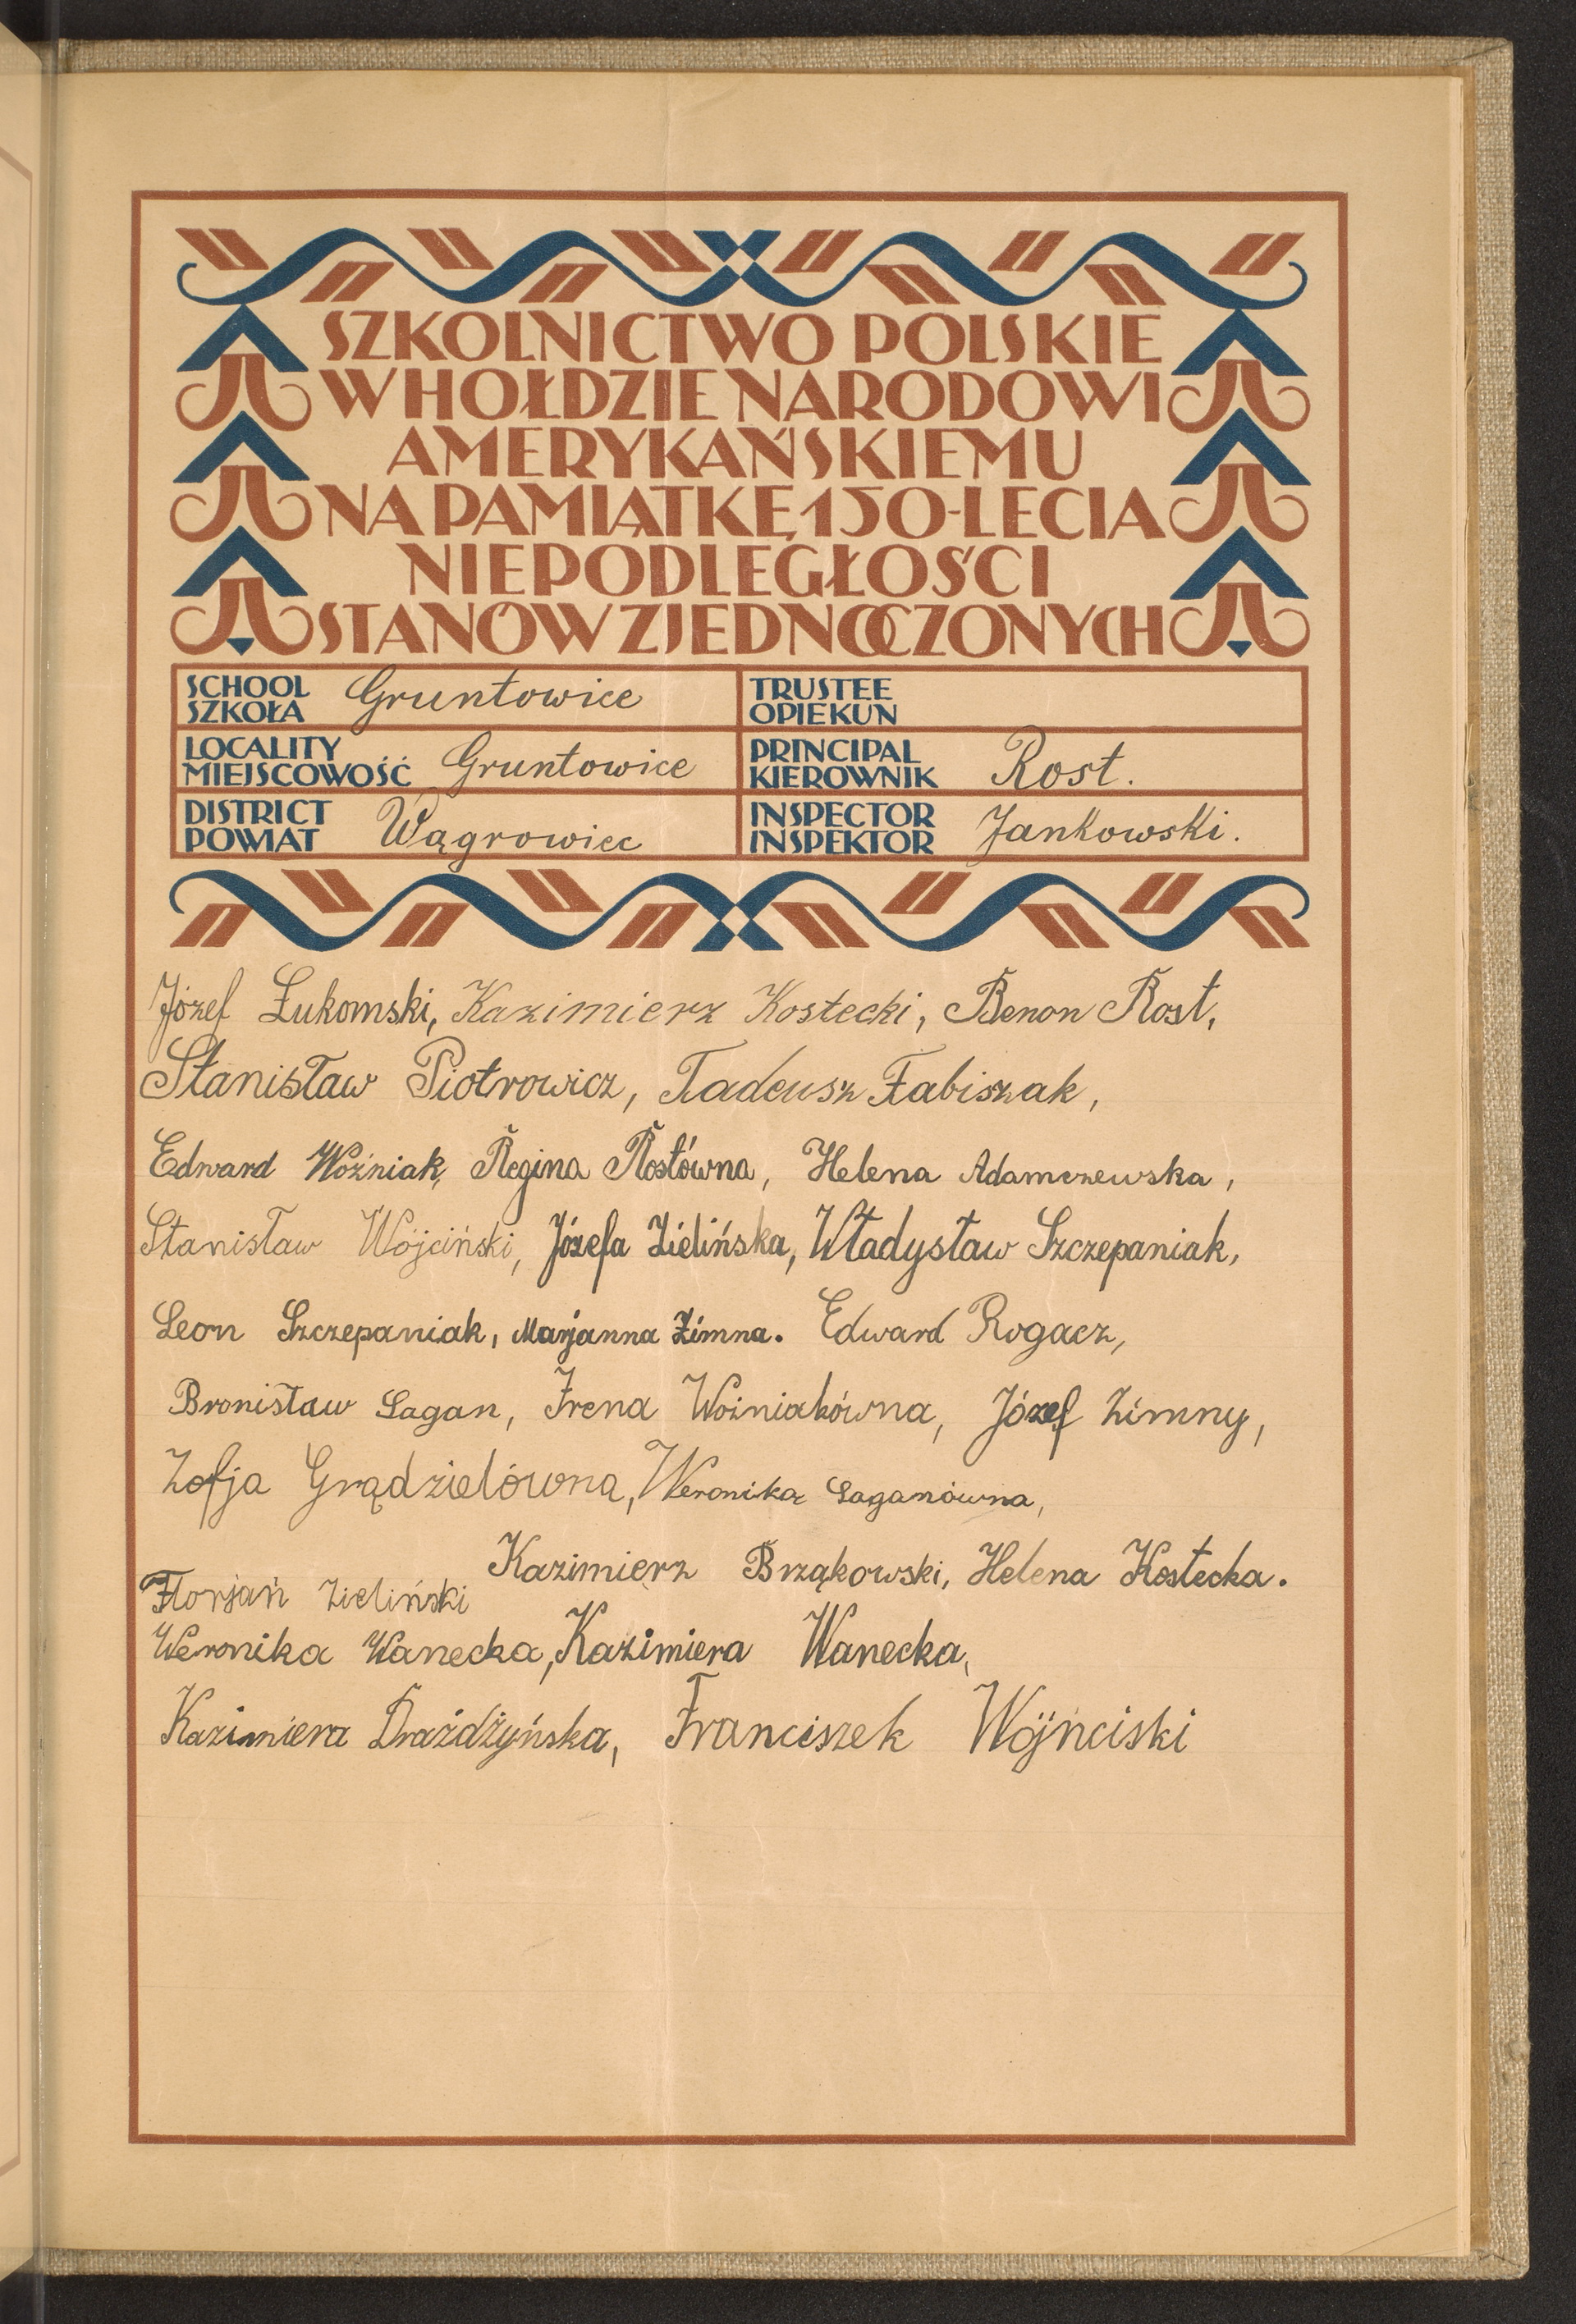 SZKOLNICTWO POLSKIE
W HOŁDZIE NARODOWI
AMERYKAŃSKIEMU
NA PAMIĄTKĘ 150-LECIA
NIEPODLEGŁOŚCI
STANÓW ZJEDNOCZONYCH
SCHOOL
SZKOŁA Gruntowice
TRUSTEE
OPIEKUN
LOCALITY
MIEJSCOWOŚĆ Gruntowice
PRINCIPAL
KIEROWNIK Rost.
DISTRICT
POWIAT Wągrowiec
INSPECTOR
INSPEKTOR Jankowski.
Józef Łukomski, Kazimierz Kostecki, Benon Rost,
Stanisław Piotrowicz, Tadeusz Fabiszak,
Edward Woźniak, Regina Rostówna, Helena Adamczewska,
Stanisław Wójciński, Józefa Zielińska, Władysław Szczepaniak,
Leon Szczepaniak, Marjanna Zimna. Edward Rogacz,
Bronisław Łagan, Irena Woźniakówna, Józef Zimny,
Zofja Grądzielówna, Weronika Łaganówna,
Kazimierz Brząkowski, Helena Kostecka.
Florjań Zieliński
Weronika Wanecka, Kazimiera Wanecka,
Kazimiera Drażdżyńska, Franciszek Wójńciski